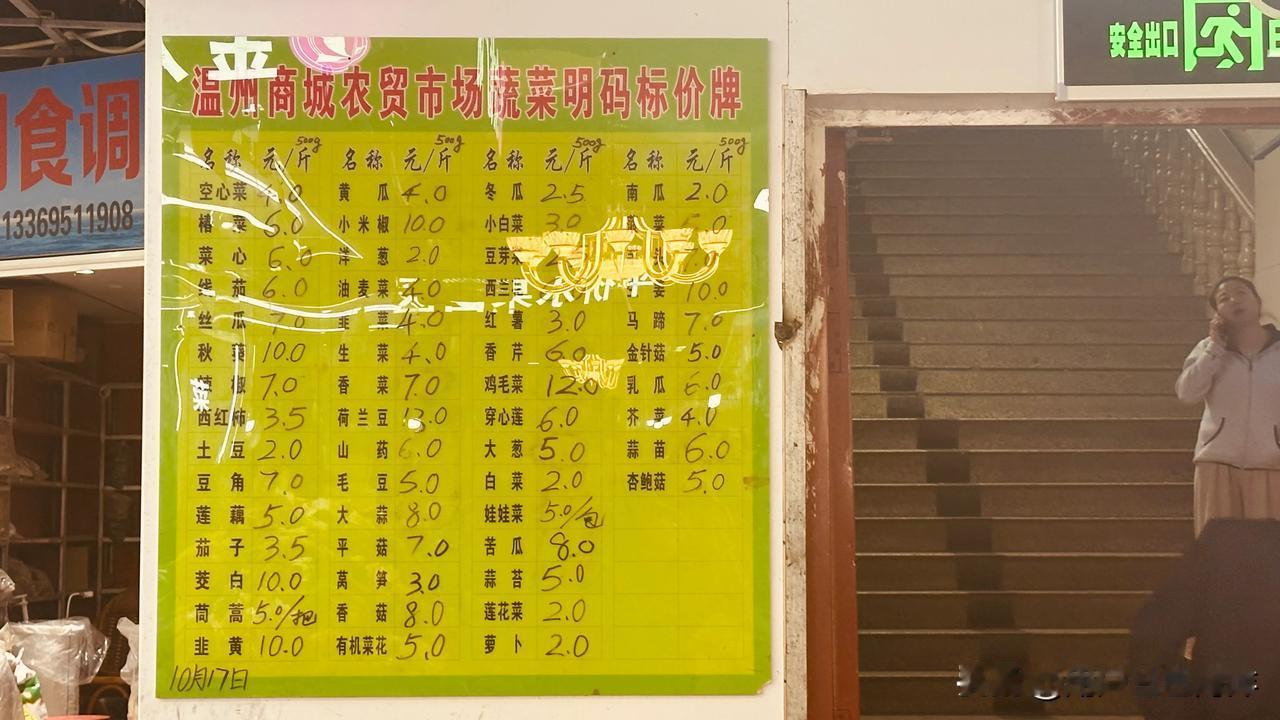 温州商城农贸市场蔬菜明码标价牌
500g 500g 500g 500g
名称 元/斤 名称 元/斤 名称 元/斤 名称 元/斤
空心菜 4.0 黄瓜 4.0 冬瓜 2.5 南瓜 2.0
椿菜 6.0 小米椒 10.0 小白菜 3.0 菜 5.0
菜心 6.0 洋葱 2.0 豆芽 7.0
线茄 6.0 油麦菜 4.0 西兰 姜 10.0
丝瓜 7.0 韭菜 4.0 红薯 3.0 马蹄 7.0
秋葵 10.0 生菜 4.0 香芹 6.0 金针菇 5.0
辣椒 7.0 香菜 7.0 鸡毛菜 12.0 乳瓜 6.0
西红柿 3.5 荷兰豆 13.0 穿心莲 6.0 芥菜 4.0
土豆 2.0 山药 6.0 大葱 5.0 蒜苗 6.0
豆角 7.0 毛豆 5.0 白菜 2.0 杏鲍菇 5.0
莲藕 5.0 大蒜 8.0 娃娃菜 5.0/包
茄子 3.5 平菇 7.0 苦瓜 8.0
茭白 10.0 莴笋 3.0 蒜苔 5.0
茼蒿 5.0/把 香菇 8.0 莲花菜 2.0
韭黄 10.0 有机菜花 5.0 萝卜 2.0
10月17日
食调
13369511908
安全出口